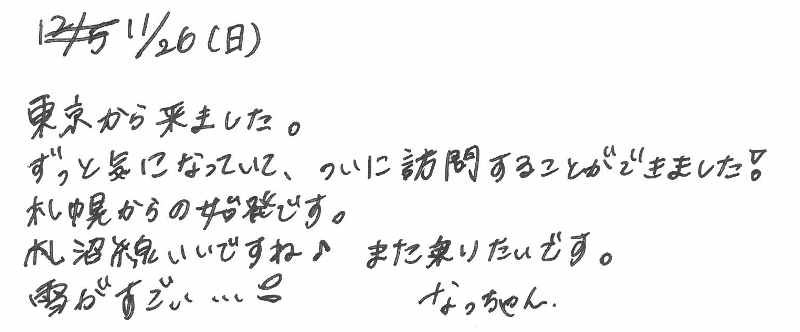 12/5 11/26(日)
東京から来ました。
ずっと気になっていて、ついに訪問することができました!
札幌からの始発です。
札沼線いいですね♪ また乗りたいです。
雪がすごい…
なっちゃん.